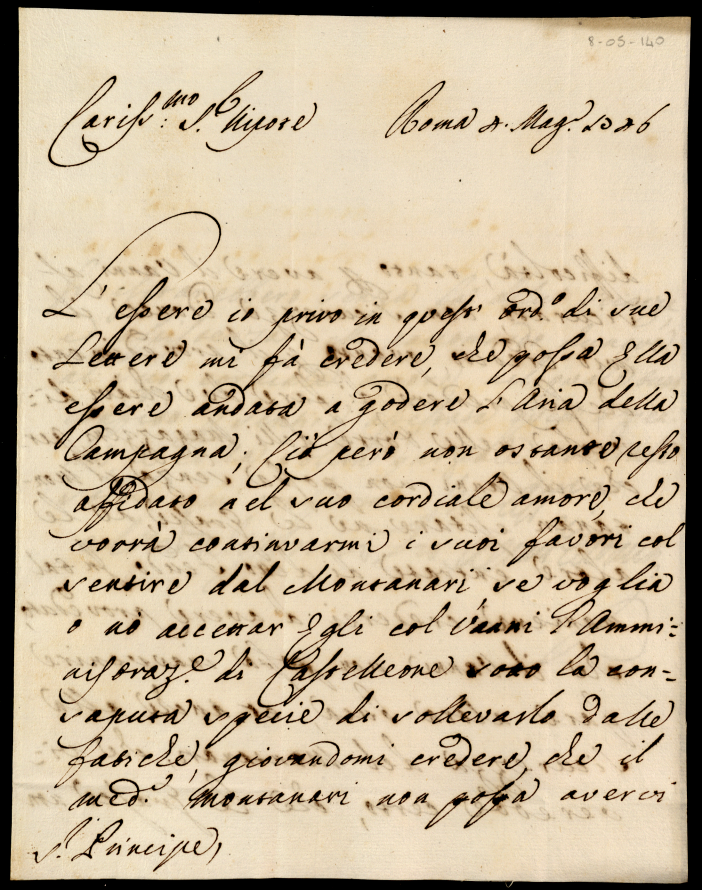 8-05-140
Cariss.mo S.r Nipote Roma 4. Mag.o 1746
L' essere io privo in quest' ord.o di sue
Lettere mi fà credere, che possa Ella
essere andata a godere l'Aria della
Campagna; Ciò però non ostante resto
affidato nel suo cordiale amore, che
vorrà continuarmi i suoi favori col
sentire dal Montanari, se voglia
o nò accettar Egli col Vanni l'Ammi=
nistraz.e di Castelleone sotto la con=
saputa specie di sollevarlo dalle
fatiche, giovandomi credere, che il
med.o Montanari non possa avervi
S.r Principe,